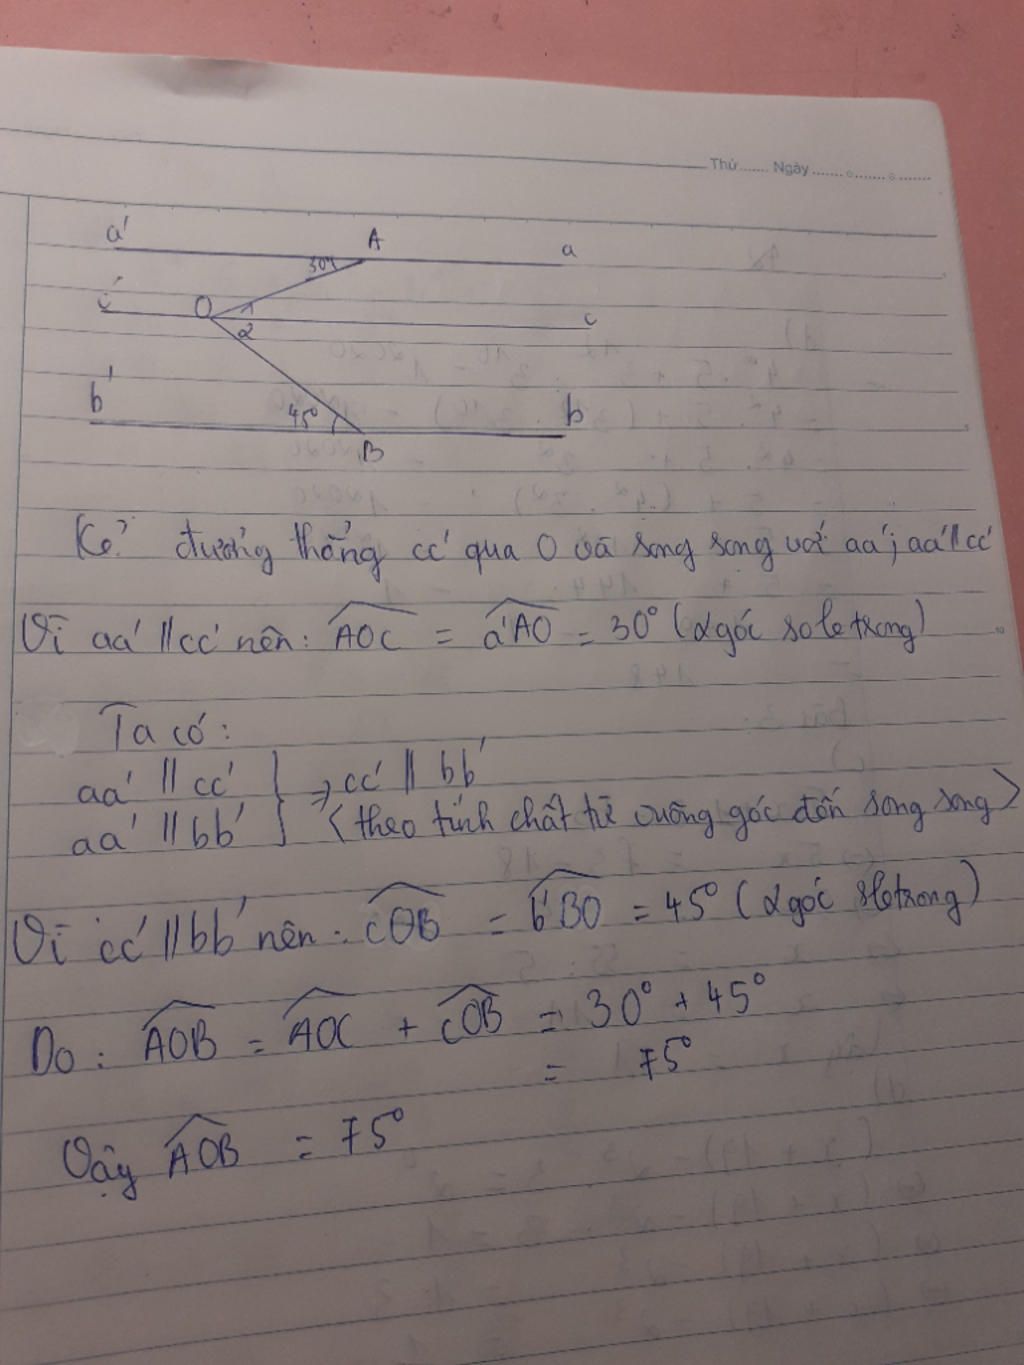 Thứ....... Ngày.......
a' A a
30°
c' O 1 c
2
b' 45° b
B
Kẻ đường thẳng cc' qua O và song song với aa'; aa' // cc'
Vì aa' // cc' nên: AOC = a'AO = 30° (2 góc so le trong)
Ta có:
aa' // cc' } ⇒ cc' // bb'
aa' // bb' } (theo tính chất từ vuông góc đến song song)
Vì cc' // bb' nên: cOB = b'BO = 45° (2 góc sletrong)
Do: AOB = AOC + cOB = 30° + 45°
= 75°
Vậy AOB = 75°